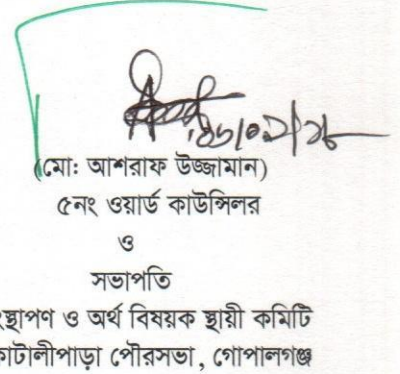 (মোঃ আশরাফ উজ্জামান)
৫নং ওয়ার্ড কাউন্সিলর
ও
সভাপতি
ংস্থাপণ ও অর্থ বিষয়ক স্থায়ী কমিটি
াটালীপাড়া পৌরসভা, গোপালগঞ্জ